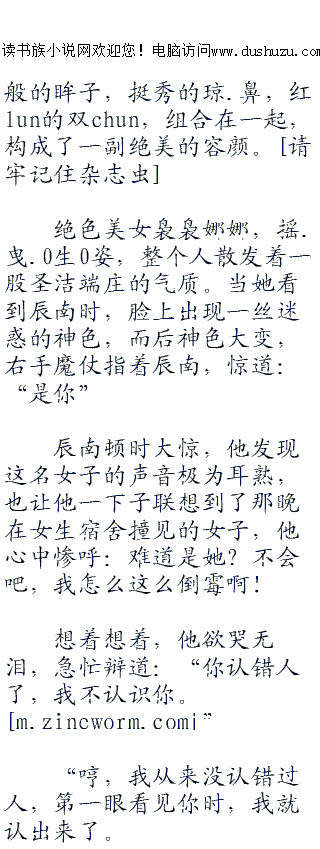 读书族小说网欢迎您！电脑访问www.dushuzu.com
般的眸子，挺秀的琼.鼻，红
lun的双chun，组合在一起，
构成了一副绝美的容颜。[请
牢记住杂志虫]
绝色美女袅袅娜娜，摇.
曳.0生0姿，整个人散发着一
股圣洁端庄的气质。当她看
到辰南时，脸上出现一丝迷
惑的神色，而后神色大变，
右手魔仗指着辰南，惊道：
“是你”
辰南顿时大惊，他发现
这名女子的声音极为耳熟，
也让他一下子联想到了那晚
在女生宿舍撞见的女子，他
心中惨呼：难道是她？不会
吧，我怎么这么倒霉啊！
想着想着，他欲哭无
泪，急忙辩道：“你认错人
了，我不认识你。
[m.zincworm.com]”
“哼，我从来没认错过
人，第一眼看见你时，我就
认出来了。